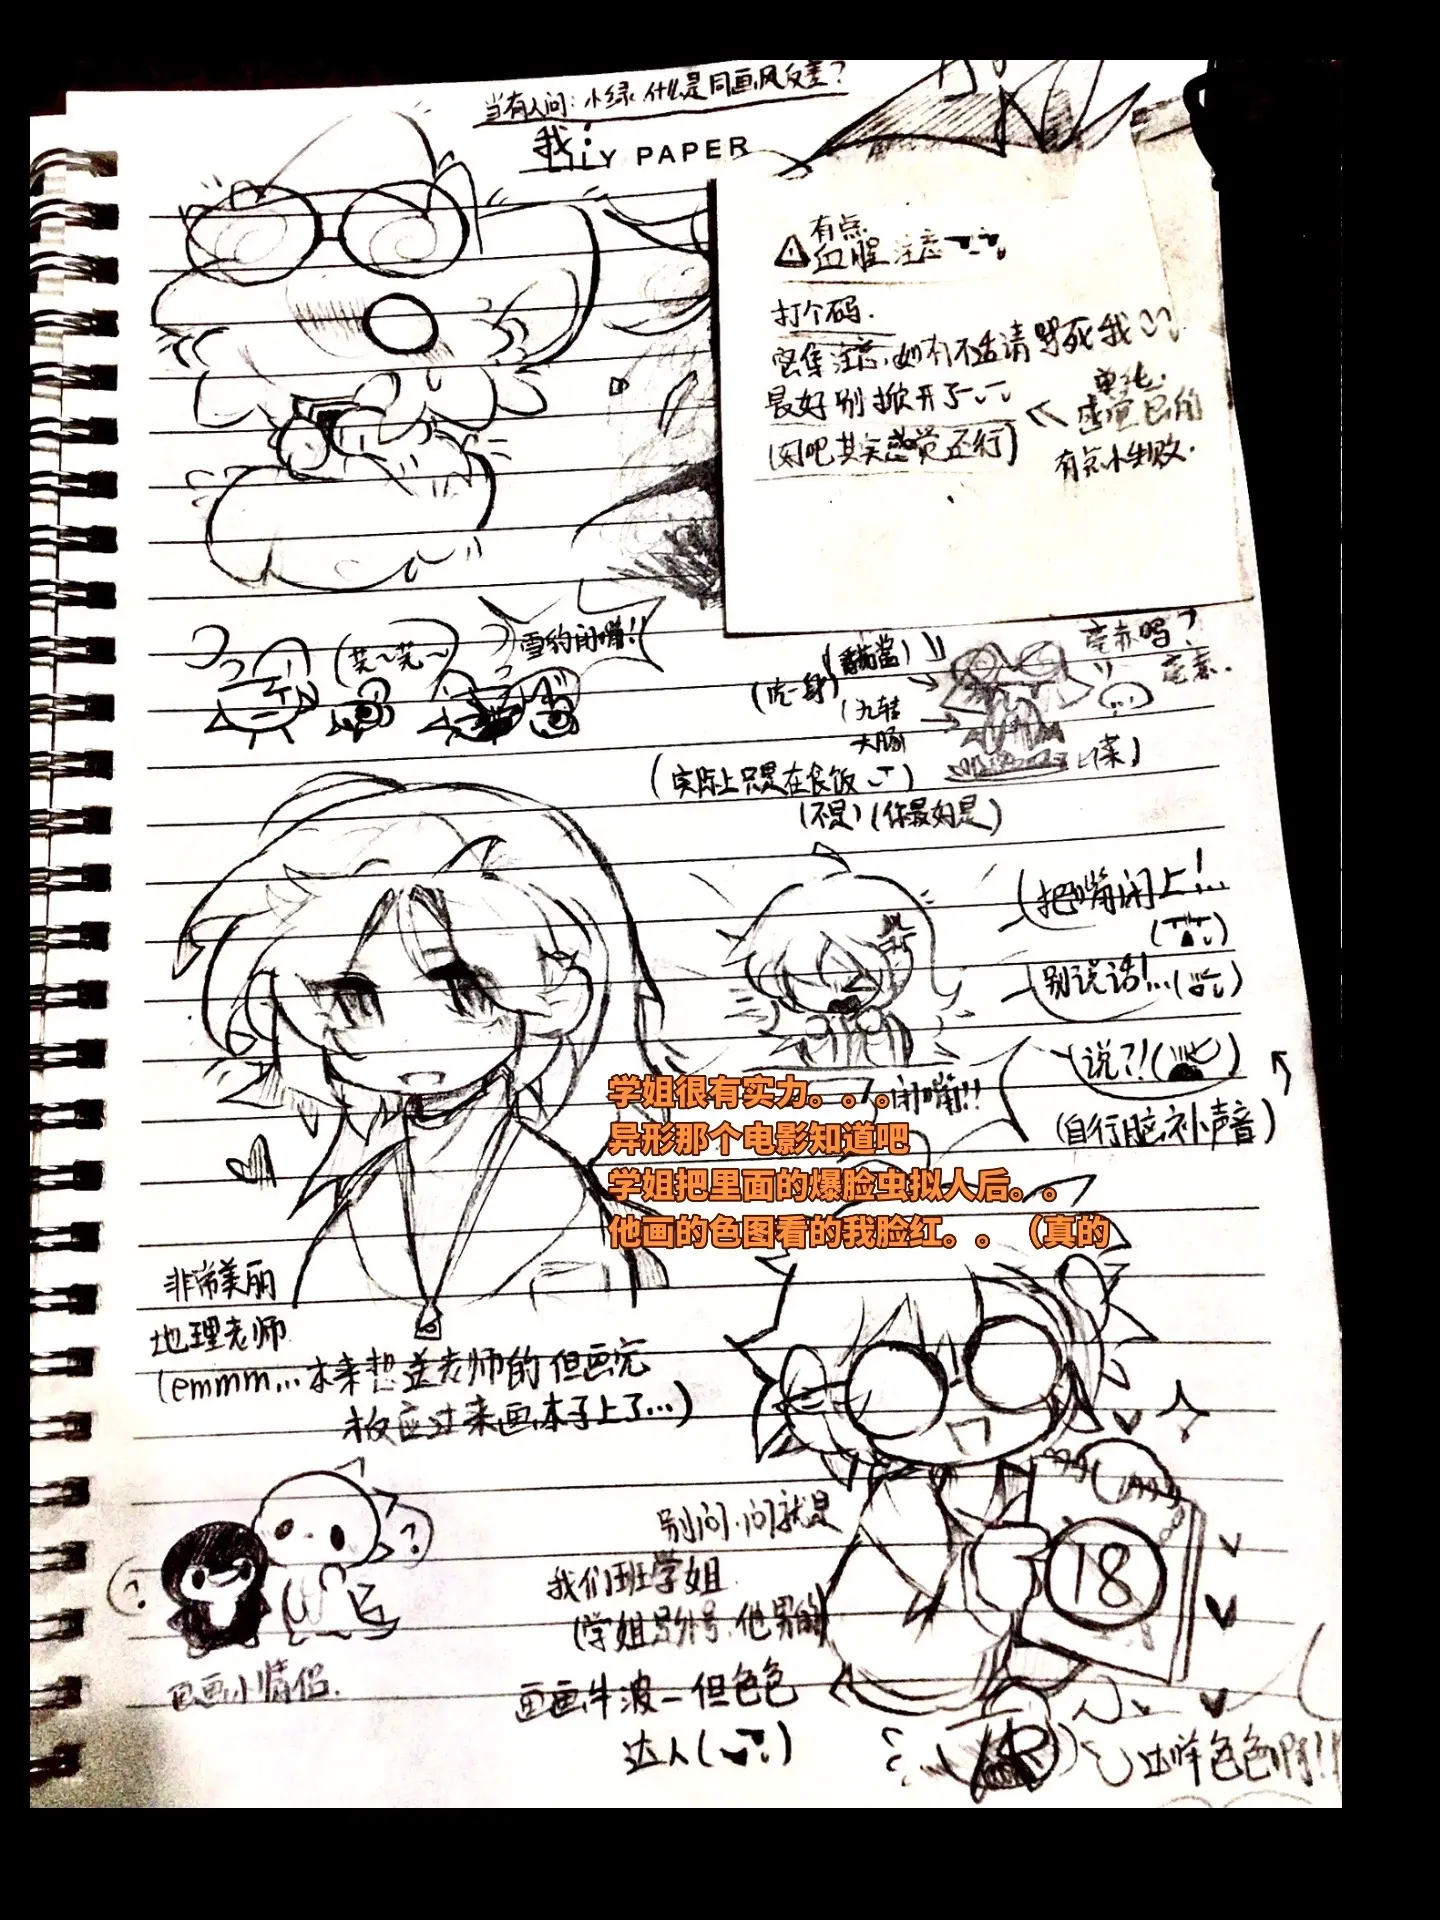 当有人问：小绿，什么是同画风反差？
我：
LILY PAPER
有点
血腥注意
打个码.
密集注意,如有不适请骂死我
最好别掀开了
(闭吧其实感觉还行)
单纯.
感觉自的
有点小失败.
(芜~芜~
雪豹闭嘴!!
(番茄酱)
(吃一身)
(九转
大肠
变态吗?
变态.
(菜)
(实际上只是在食饭
(不是)(你最好是)
(把嘴闭上!...
别说话!...
闭嘴!!
说?!
(自行脑补声音)
学姐很有实力。。。
异形那个电影知道吧
学姐把里面的爆脸虫拟人后。。
他画的色图看的我脸红。。（真的
非常美丽
地理老师
(emmm...本来想送老师的但画完
才反应过来画本子上了...)
别问.问就是
我们班学姐
(学姐是外号,他男的)
画画牛波一但色色
达人
18
画画小情侣.
这样色色啊!!